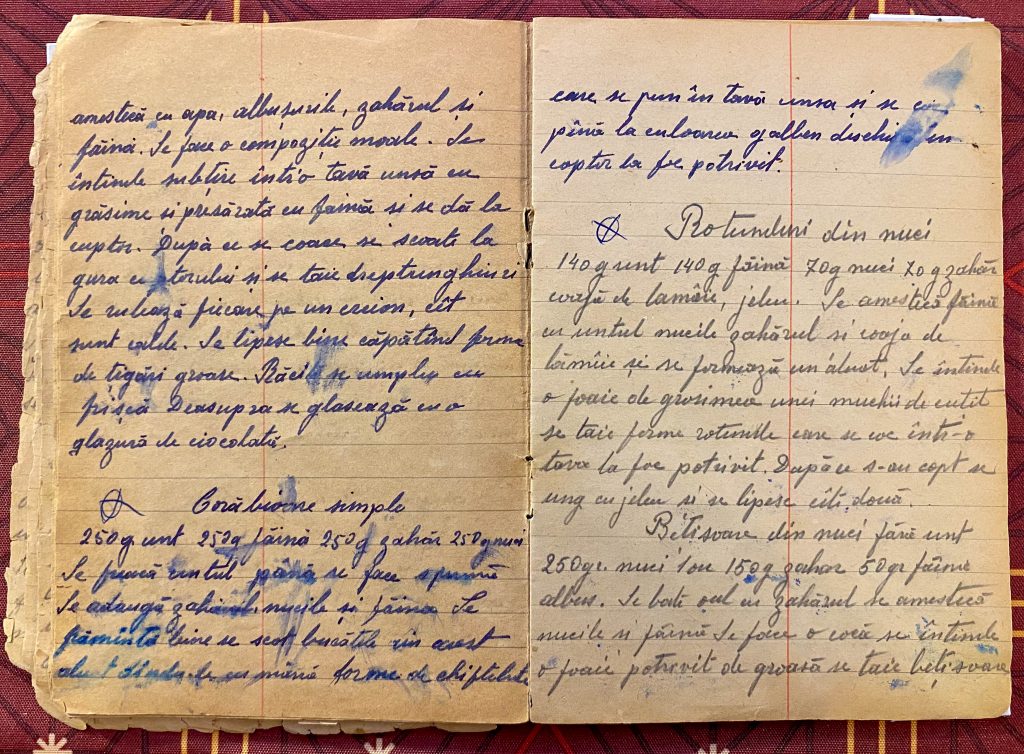 amestecă cu apa, albușurile, zahărul și
făina. Se face o compoziție moale. Se
întinde subțire într'o tavă unsă cu
grăsime si presărată cu făină si se dă la
cuptor. După ce se coace se scoate la
gura cu torului si se taie dreptunghiuri
Se rulează fiecare pe un creion, cît
sunt calde. Se lipesc bine căpătînd forme
de țigări groase. Răcite se umplu cu
frișcă Deasupra se glasează cu o
glazură de ciocolată.
Corăbioare simple
250g unt 250g făină 250g zahăr 250g nuci
Se freacă untul până se face spumă
Se adaugă zahărul, nucile și făina Se
frămîntă bine se scot bucățele din acest
aluat dîndu-le cu mîna forme de chiftelute
care se pun în tavă unsa si se
pînă la culoarea galben dischis in
coptor la foc potrivit.
Rotunduri din nuci
140g unt 140g făină 70g nuci 70g zahăr
coajă de lamâie, jeleu. Se amestică făina
cu untul nucile zahărul si coaja de
lămîie și se formează un aluat. Se întinde
o foaie de grosimea unei muchii de cutit
se taie forme rotunde care se coc într-o
tava la foc potrivit. După ce s-au copt se
ung cu jeleu si se lipesc cîte două.
Bețisoare din nuci fără unt
250gr. nuci 1ou 150g zahar 50gr făină
albus. Se bate oul cu zahărul se amestică
nucile si făină Se face o cocă se întinde
o foaie potrivit de groasă se taie bețisoare